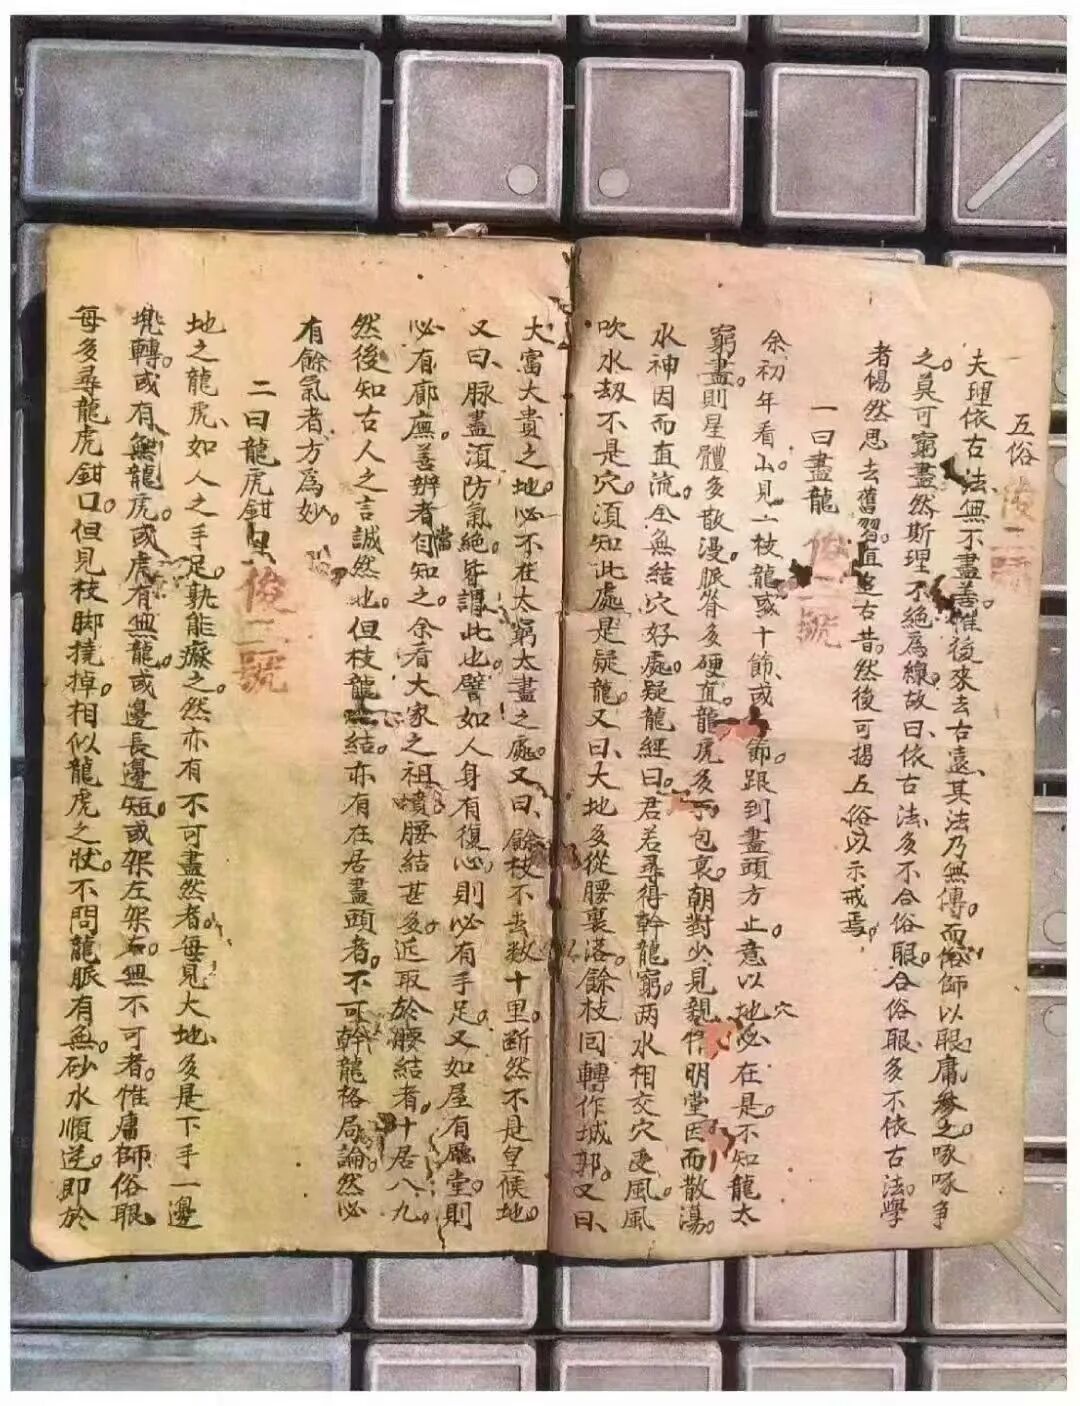 五俗
夫理依古法無不盡善惟後來去古遠其法乃無傳而俗師以眼庸參之啄啄爭
之莫可窮盡然斯理不絕為線故曰依古法多不合俗眼合俗眼多不依古法學
者惕然思去舊習直追古昔然後可揭五俗以示戒焉
一曰盡龍
余初年看山見一枝龍或十節或 節跟到盡頭方止意以地穴必在是不知龍太
窮盡則星體多散漫脈脊多硬直龍虎多不包裹朝對少見親作明堂因而散蕩
水神因而直流全無結穴好處疑龍經曰君若尋得幹龍窮两水相交穴受風風
吹水劫不是穴須知此處是疑龍又曰大地多從腰裏落餘枝囘轉作城郭又曰
大富大貴之地必不在太窮太盡之處又曰餘枝不去数十里斷然不是皇候地
又曰脉盡湏防氣絕皆謂此也譬如人身有復心則必有手足又如屋有廳堂則
必有廊廡善辨者自當知之余看大家之祖墳腰結甚多近取於腰結者十居八九
然後知古人之言誠然也但枝龍 結亦有在居盡頭者不可幹龍格局論然必
有餘氣者方為妙
二曰龍虎鉗
俊二號
地之龍虎如人之手足孰能癈之然亦有不可盡然者每見大地多是下手一邊
兠轉或有無龍虎或虎有無龍或邊長邊短或架左架右無不可者惟庸師俗眼
每多尋龍虎鉗口但見枝脚撓掉相似龍虎之狀不問龍脈有無砂水順逆即於